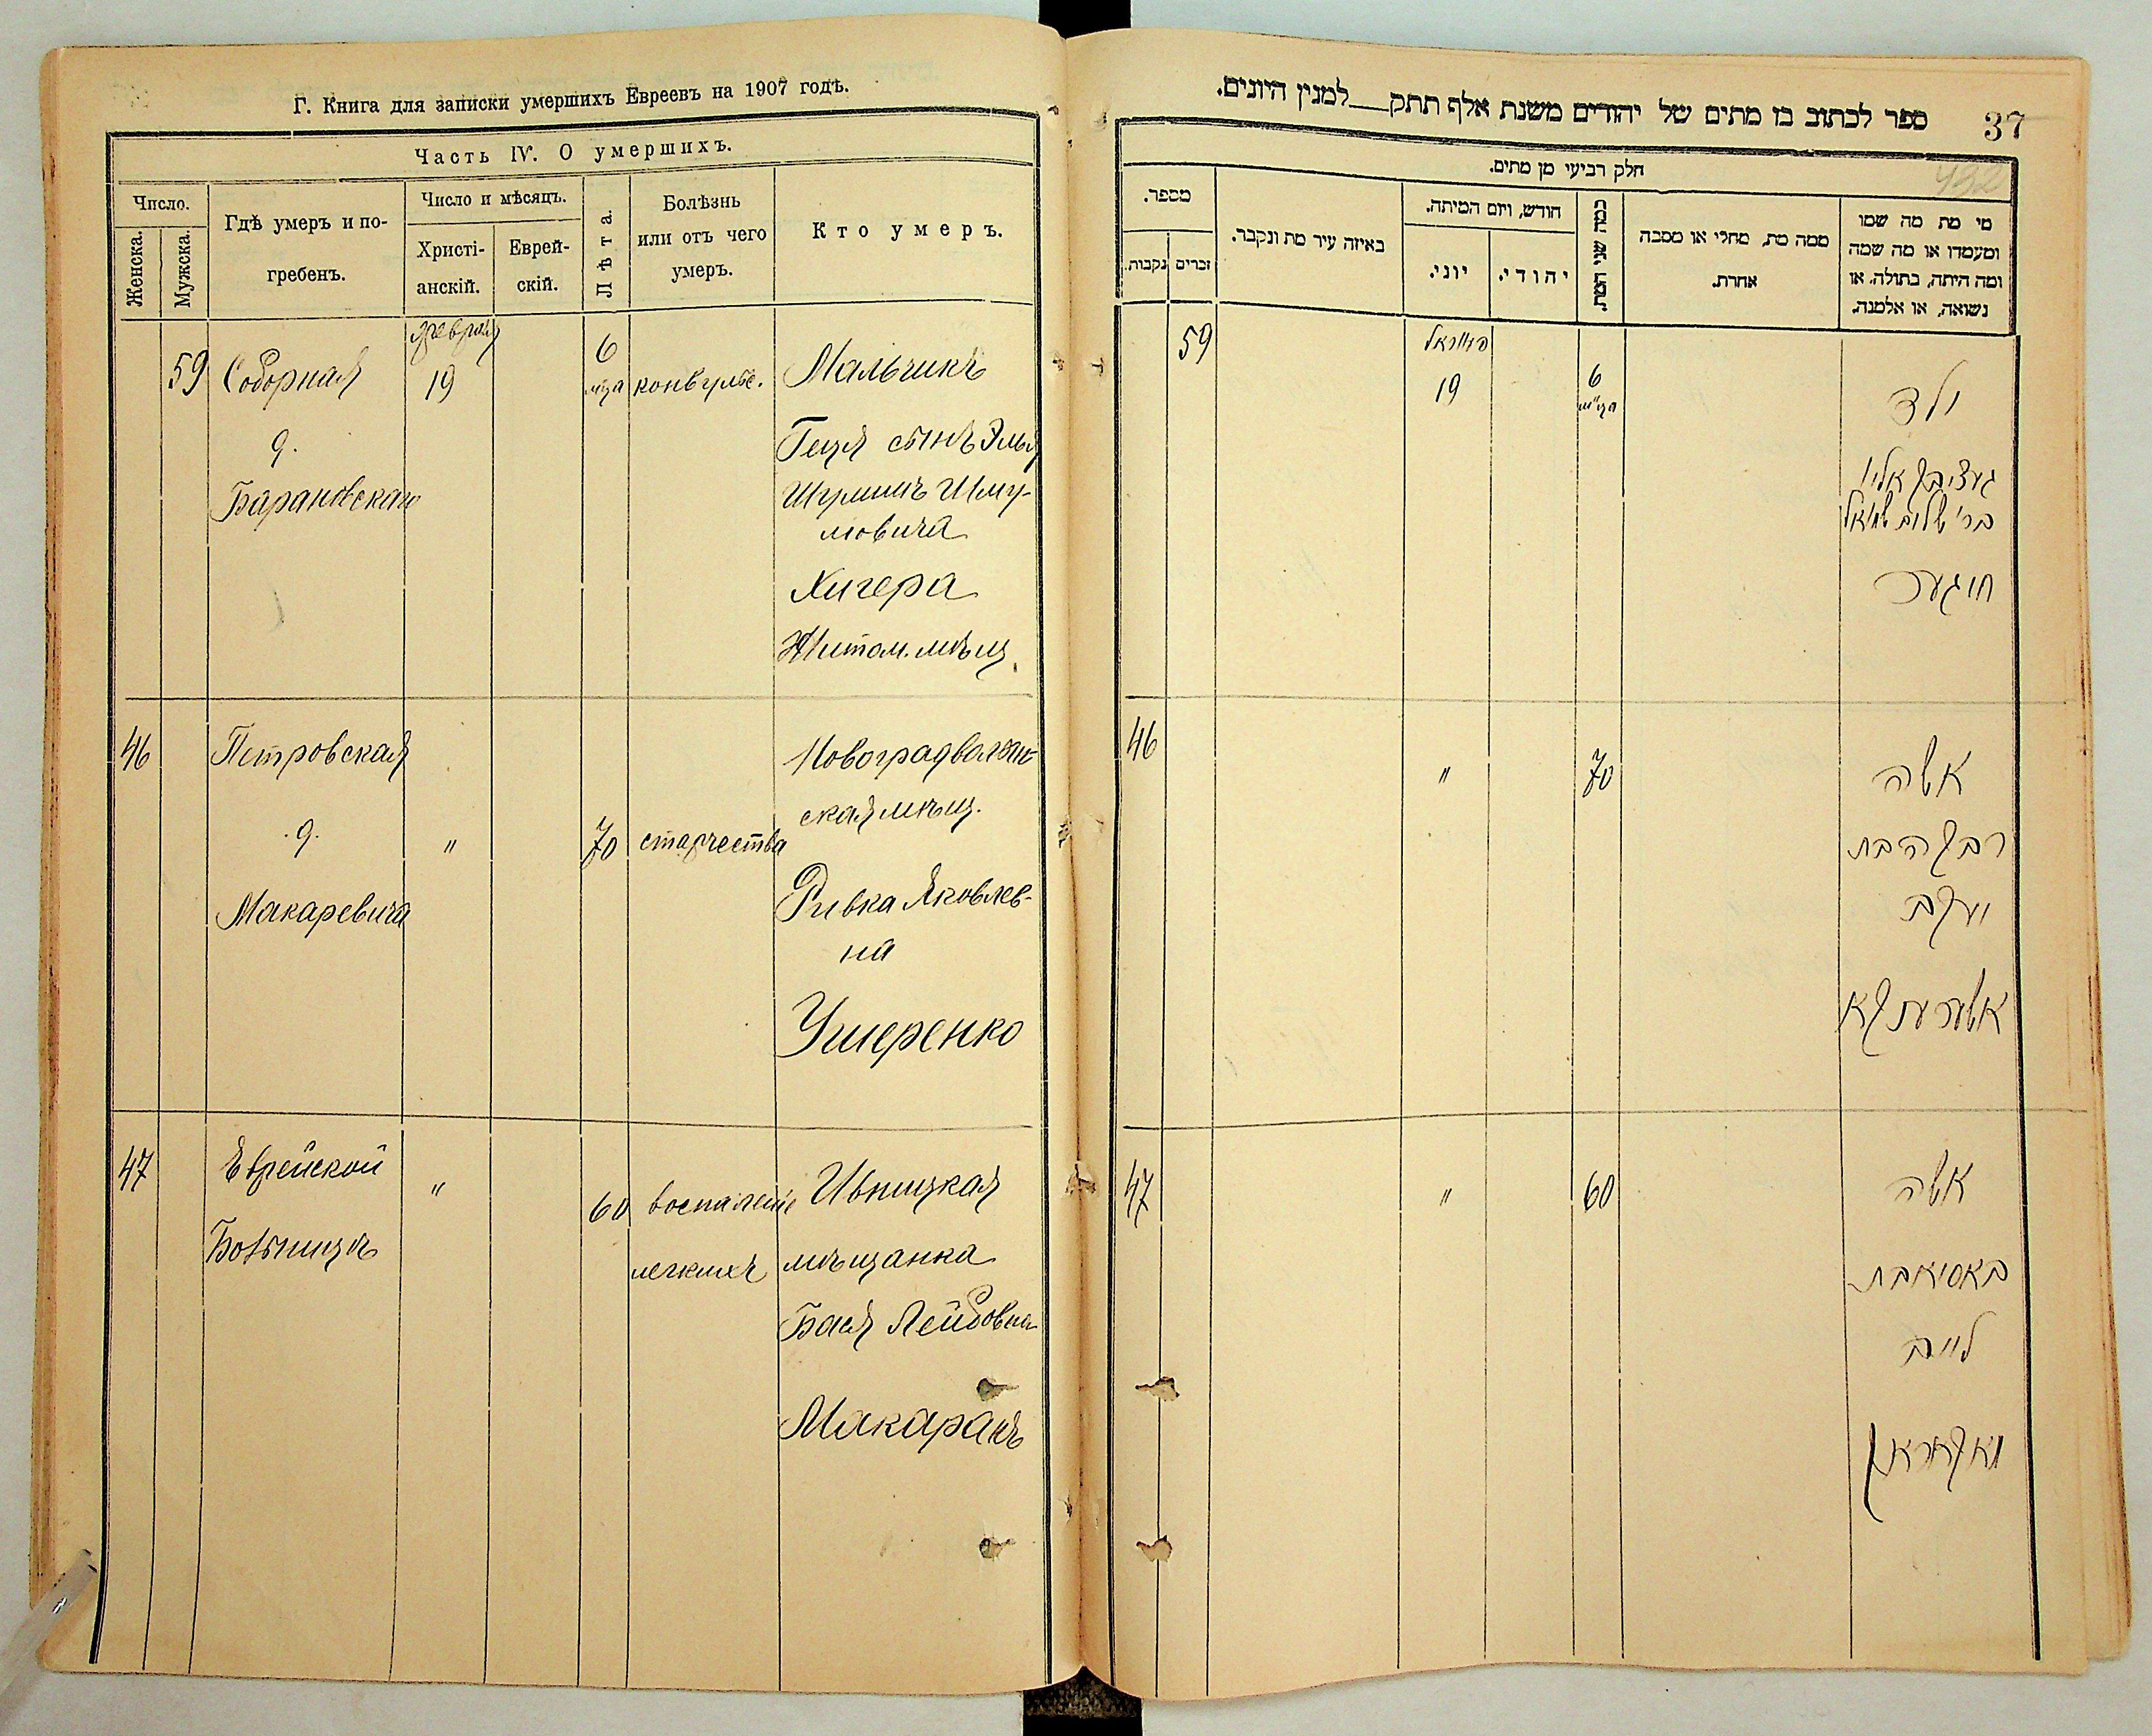 Г. Книга для записки умершихъ Евреевъ на 1907 годѣ.
Часть IV. О умершихъ.
Число.
Женска.
Мужска.
Гдѣ умеръ и по-
гребенъ.
Число и мѣсяцъ.
Христі-
анскій.
Еврей-
скій.
Лѣта.
Болѣзнь
или отъ чего
умеръ.
Кто умеръ.
59
Соборная
д.
Барановскаго
февраля
19
6
мца
конвульс.
Мальчикъ
Геця сынъ Эльи
Шулимъ Шму-
ловича
Хигера
Житом. мѣщ.
46
Петровская
д.
Макаревича
"
70
старчества
Новоградволын-
ская мѣщ.
Ривка Яковлев-
на
Ушеренко
47
Еврейской
Больницѣ
"
60
воспаленіе
легкихъ
Ивницкая
мѣщанка
Бася Лейбовна
Макаранъ
ספר לכתוב בו מתים של יהודים משנת אלף תתק__למנין היונים.
37
432
חלק רביעי מן מתים.
מספר.
נקבות.
זכרים
באיזה עיר מת ונקבר.
חודש, ויום המיתה.
יוני.
יהודי.
כמה שני המת.
ממה מת, מחלי או מסבה
אחרת.
מי מת מה שמו
ומעמדו או מה שמה
ומה היתה, בתולה, או
נשואה, או אלמנה.
59
19
6
ילד
חיגער
46
"
70
אשה
רבקה בת
יעקב
47
"
60
אשה
באסיא בת
לייב
מאקאראן